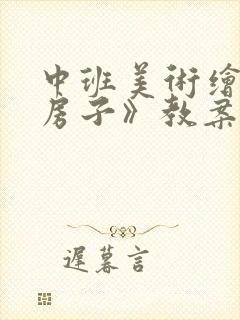 中班美術繪
房子》教案
遲暮言